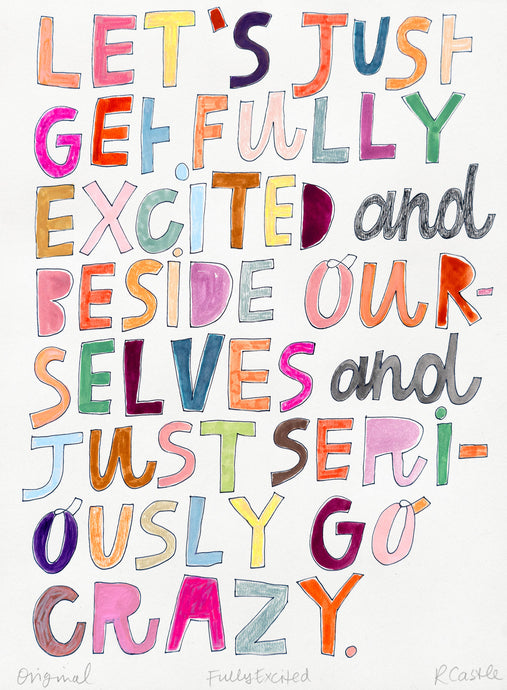 LET'S JUST
GET FULLY
EXCITED and
BESIDE OUR-
SELVES and
JUST SERI-
OUSLY GO
CRAZY.
Original FullyExcited RCastle